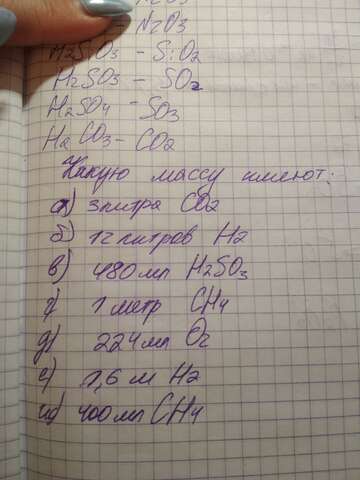 - N2O3
H2SiO3 - SiO2
H2SO3 - SO2
H2SO4 - SO3
H2CO3 - CO2
Какую массу имеют:
а) 3 литра CO2
б) 12 литров H2
в) 480 мл H2SO3
г) 1 метр CH4
д) 224 мл O2
е) 5,6 м H2
ж) 400 мл CH4